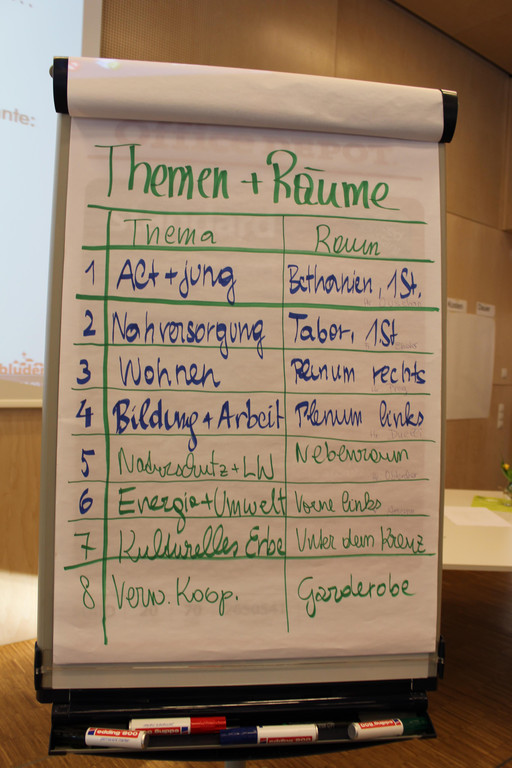 nte:
Themen + Räume
Thema Raum
1 Alt + jung Bethanien, 1St.
2 Nahversorgung Tabor, 1St
3 Wohnen Plenum rechts
4 Bildung + Arbeit Plenum links
5 Naturschutz + LW Nebenraum
6 Energie + Umwelt Vorne links
7 Kulturelles Erbe Unter dem Kreuz
8 Verw. Koop. Garderobe